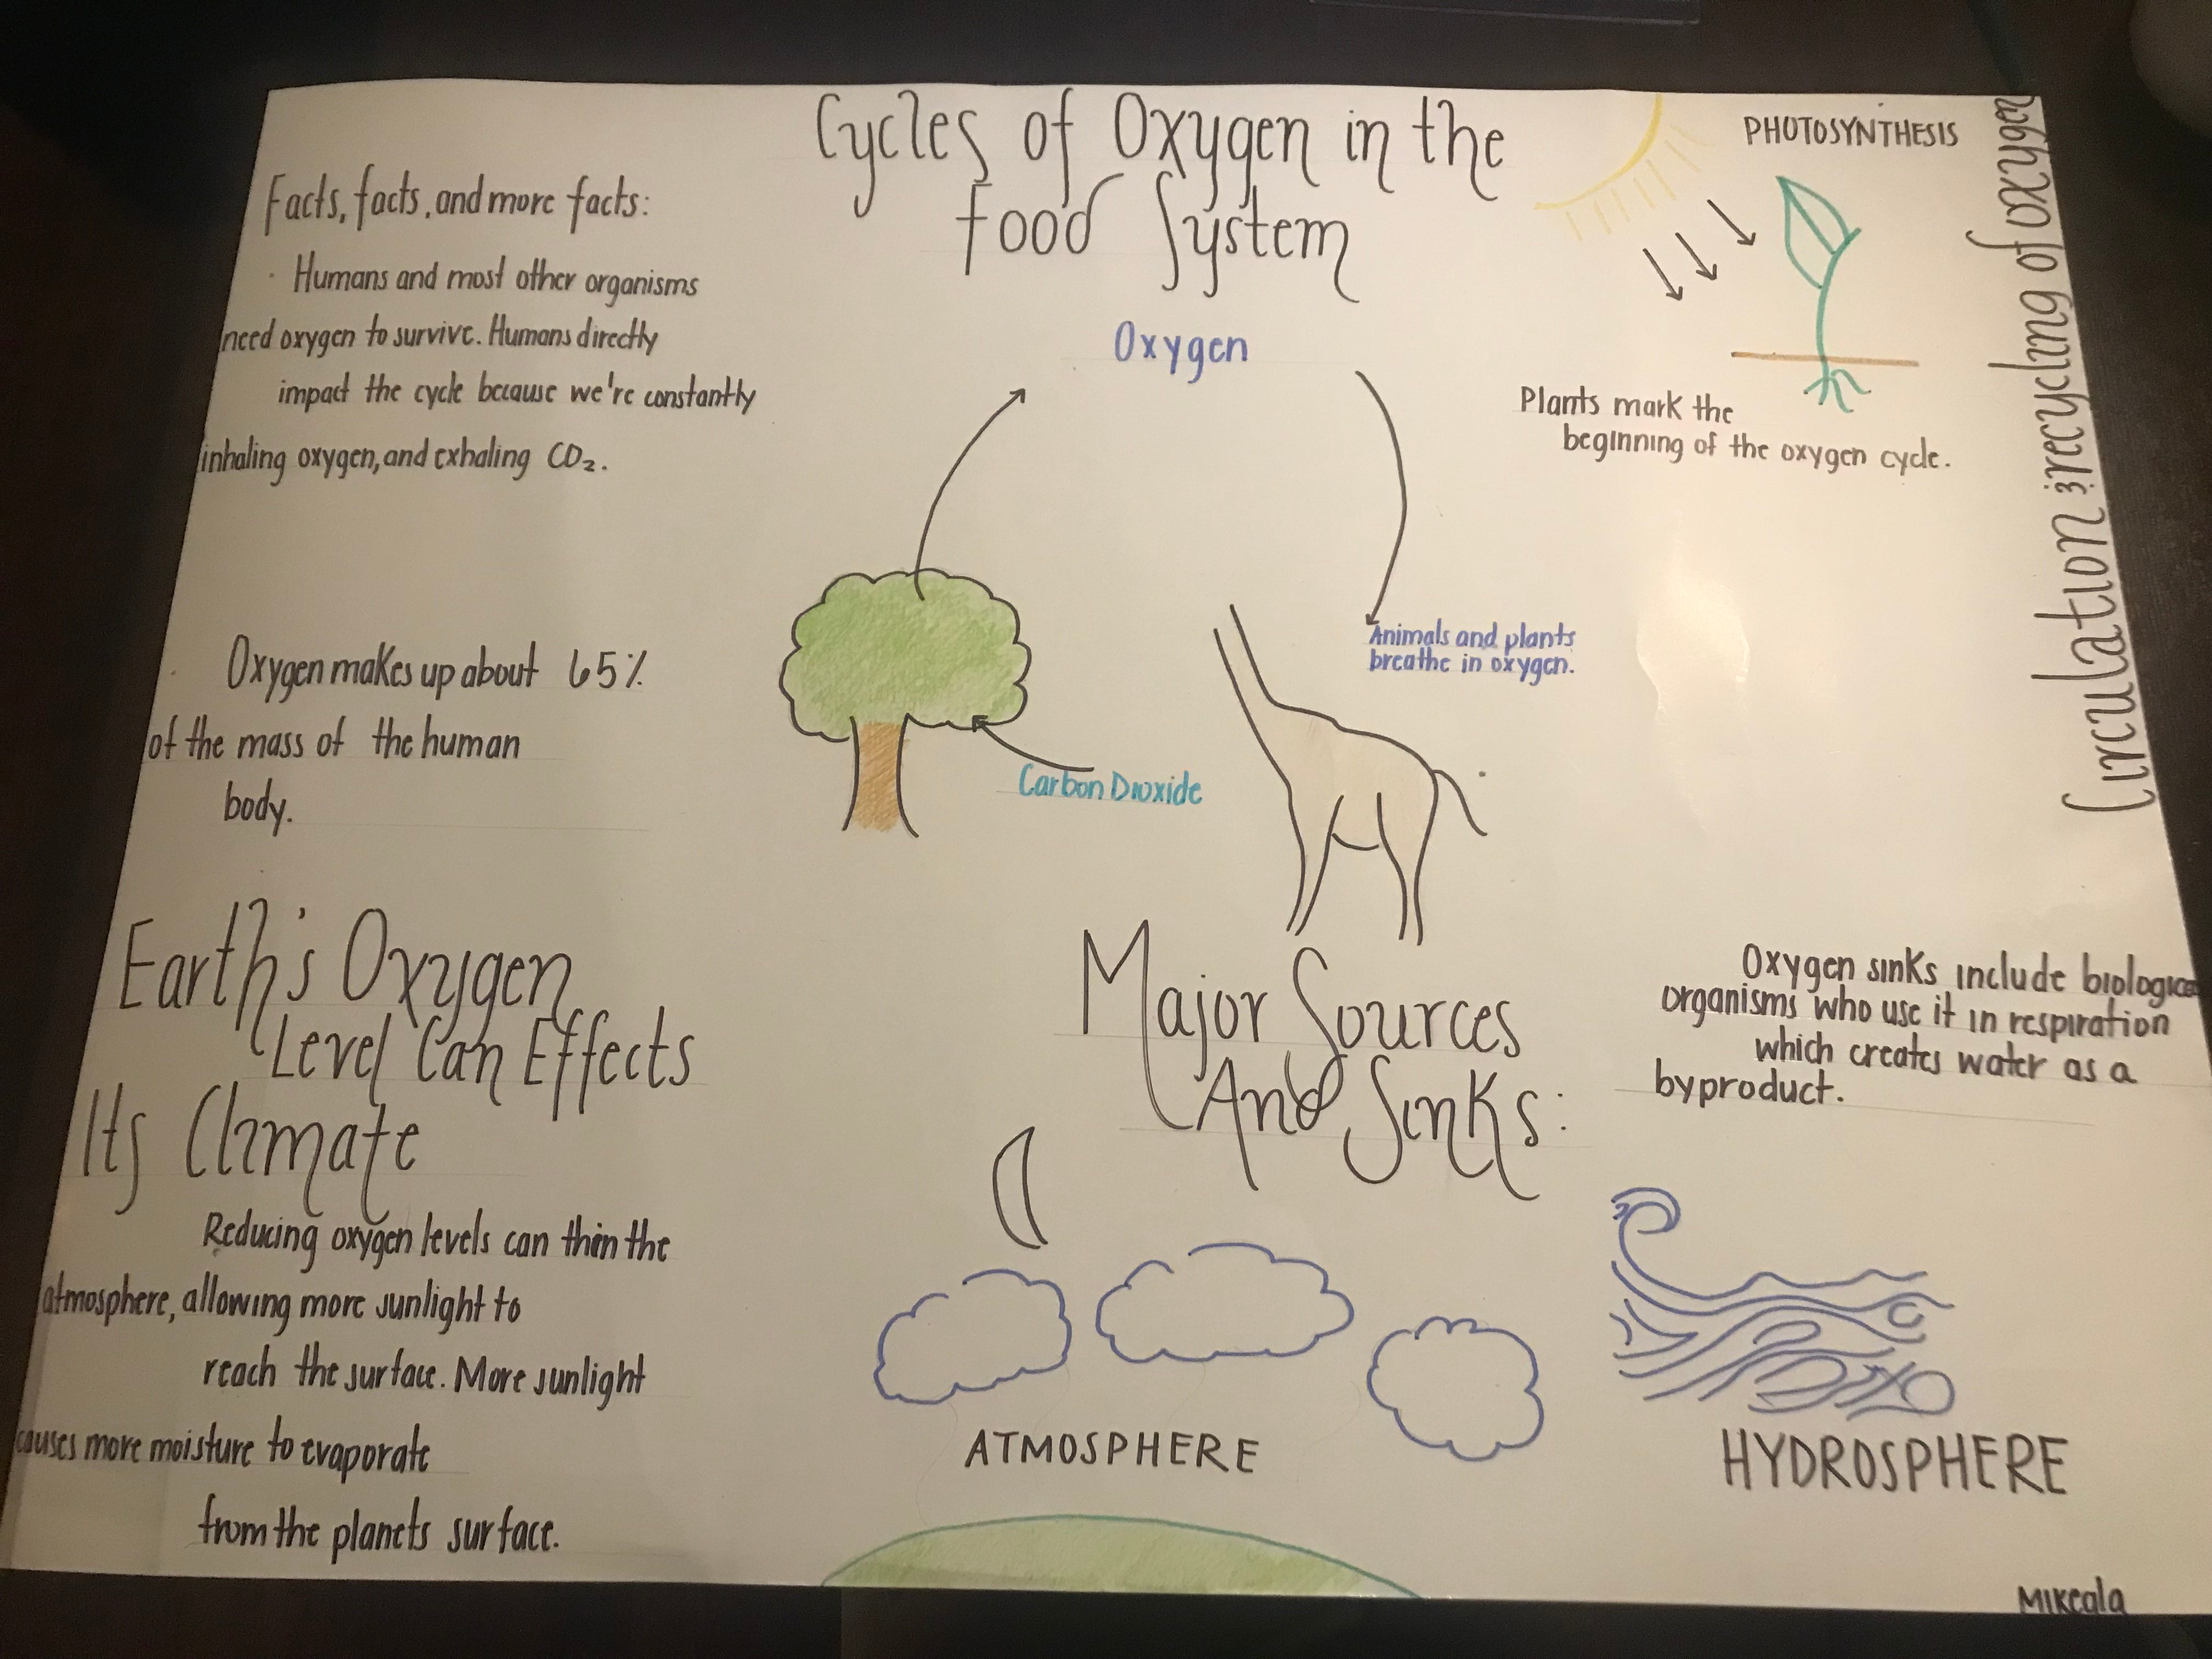 Cycles of Oxygen in the
Food System
Facts, facts, and more facts:
· Humans and most other organisms
need oxygen to survive. Humans directly
impact the cycle because we're constantly
inhaling oxygen, and exhaling CO₂.
· Oxygen makes up about 65%
of the mass of the human
body.
Earth's Oxygen
Level Can Effects
Its Climate
Reducing oxygen levels can thin the
atmosphere, allowing more sunlight to
reach the surface. More sunlight
causes more moisture to evaporate
from the planets surface.
Oxygen
Animals and plants
breathe in oxygen.
Carbon Dioxide
PHOTOSYNTHESIS
Plants mark the
beginning of the oxygen cycle.
Circulation & recycling of oxygen
Major Sources
And Sinks:
Oxygen sinks include biological
organisms who use it in respiration
which creates water as a
byproduct.
ATMOSPHERE
HYDROSPHERE
Mikeala